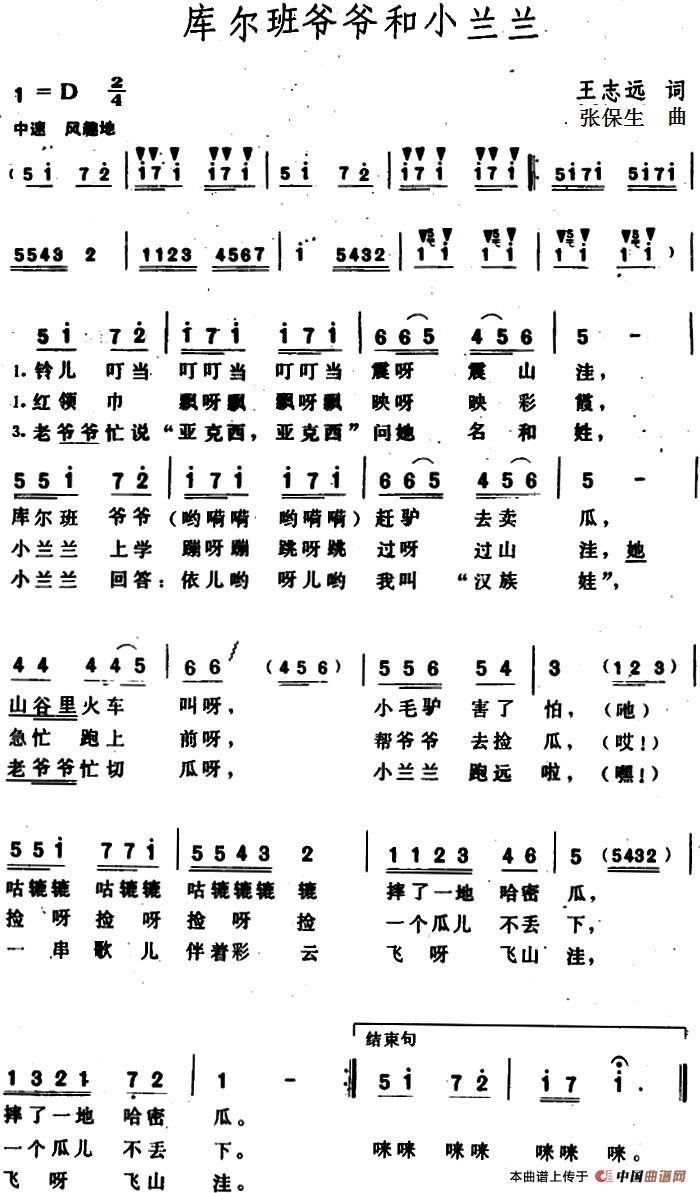 库尔班爷爷和小兰兰
1 = D 2/4
王志远 词
中速 风趣地
张保生 曲
( 5 1 7 2 | 1 7 1 1 7 1 | 5 1 7 2 | 1 7 1 1 7 1 |: 5171 5171 |
5543 2 | 1123 4567 | 1 5432 | 5 1 1 5 1 1 | 5 1 1 1 )|
5 1 7 2 | 1 7 1 1 7 1 | 6 6 5 4 5 6 | 5 - |
1.铃儿 叮当 叮叮当 叮叮当 震呀 震山 洼,
1.红领 巾 飘呀飘 飘呀飘 映呀 映彩 霞,
3.老爷爷忙说“亚克西,亚克西”问她 名和 姓,
5 5 1 7 2 | 1 7 1 1 7 1 | 6 6 5 4 5 6 | 5 - |
库尔班 爷爷 (哟嗬嗬 哟嗬嗬) 赶驴 去卖 瓜,
小兰兰 上学 蹦呀蹦 跳呀跳 过呀 过山 洼,她
小兰兰 回答:依儿哟 呀儿哟 我叫 “汉族 娃”,
4 4 4 4 5 | 6 6 (4 5 6) | 5 5 6 5 4 | 3 (1 2 3) |
山谷里火车 叫呀, 小毛驴 害了 怕,(吔)
急忙 跑上 前呀, 帮爷爷 去捡 瓜,(哎!)
老爷爷忙切 瓜呀, 小兰兰 跑远 啦,(嘿!)
5 5 1 7 7 1 | 5 5 4 3 2 | 1 1 2 3 4 6 | 5 (5432) |
咕辘辘 咕辘辘 咕辘辘辘 辘 摔了一地 哈密 瓜,
捡 呀 捡 呀 捡 呀 捡 一个瓜儿 不丢 下,
一 串 歌 儿 伴着彩 云 飞 呀 飞山 洼,
结束句
1 3 2 1 7 2 | 1 - :| 5 1 7 2 | 1 7 1. ‖
摔了一地 哈密 瓜。
一个瓜儿 不丢 下。 咪咪 咪咪 咪咪 咪。
飞 呀 飞山 洼。
本曲谱上传于 中国曲谱网